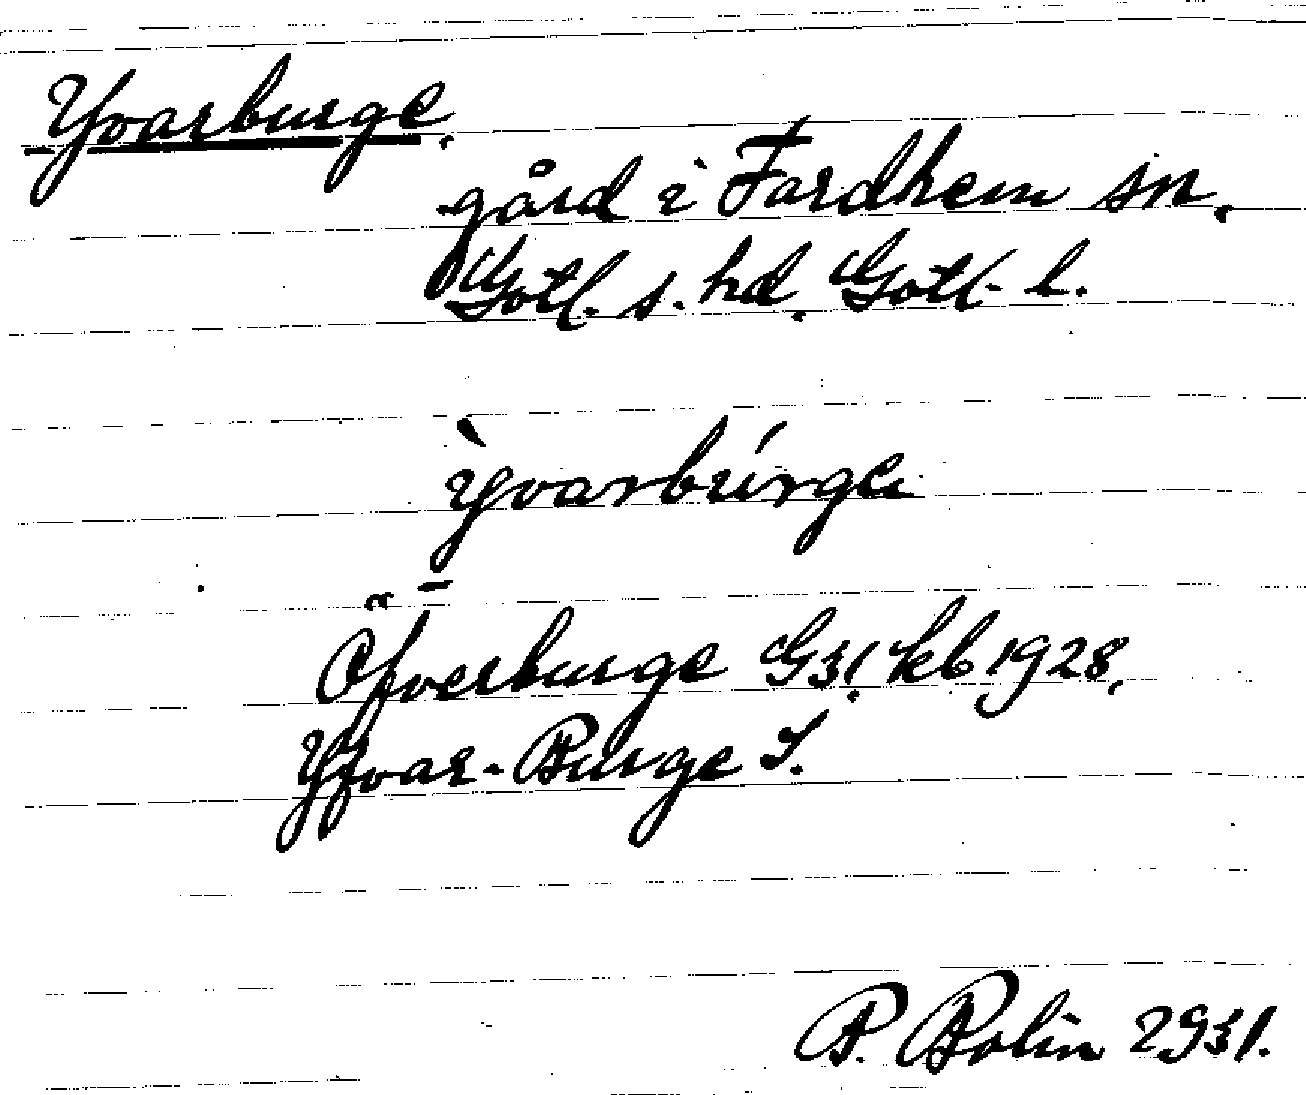 Yvarburge.
gård i Fardhem sn.
Gotl. s. hd. Gotl. l.
ỳvarbúrge
Öfverburge G31. kb 1928.
Yfvar-Burge S.
P. Bolin 2931.